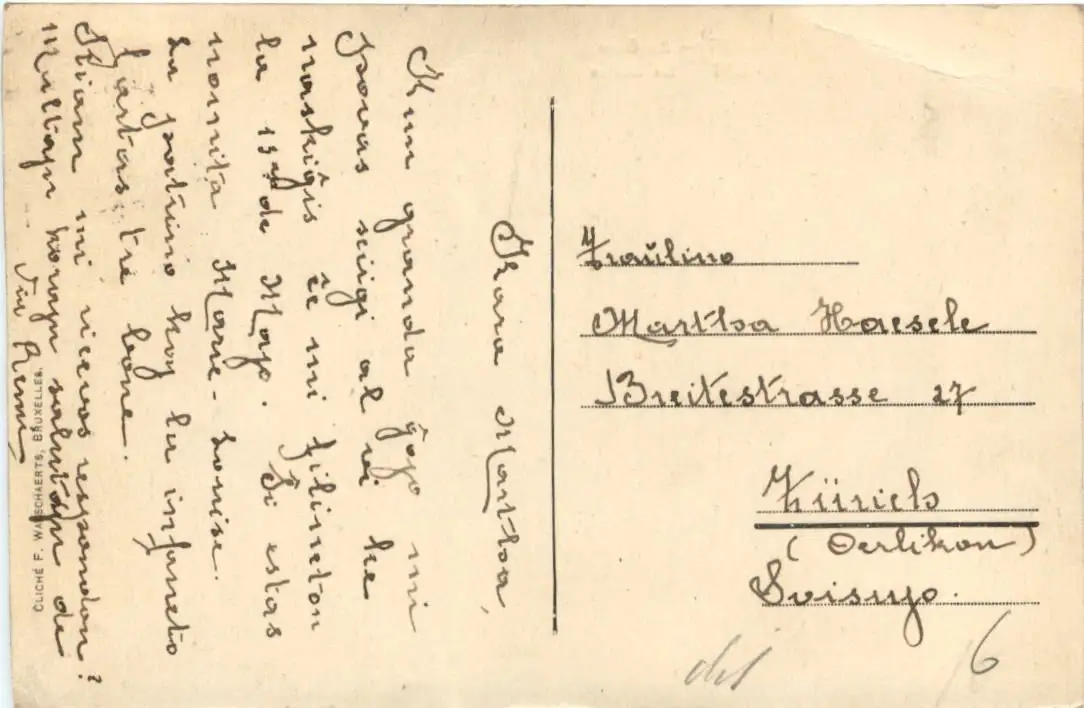 Kara Martha,
Kun granda ĝojo mi
povas sciigi al vi ke
naskiĝis ĉe mi filineton
la 13an de Majo. Ŝi estas
nomita Marie-Louise.
La patrino kaj la infaneto
fartas tre bone.
Kiam mi ricevos respondon?
Multajn korajn salutojn de
Via Remi
CLICHÉ F. WALSCHAERTS, BRUXELLES.
Fraŭlino
Martha Haesele
Breitestrasse 27
Zürich
(Oerlikon)
Svisujo.
6